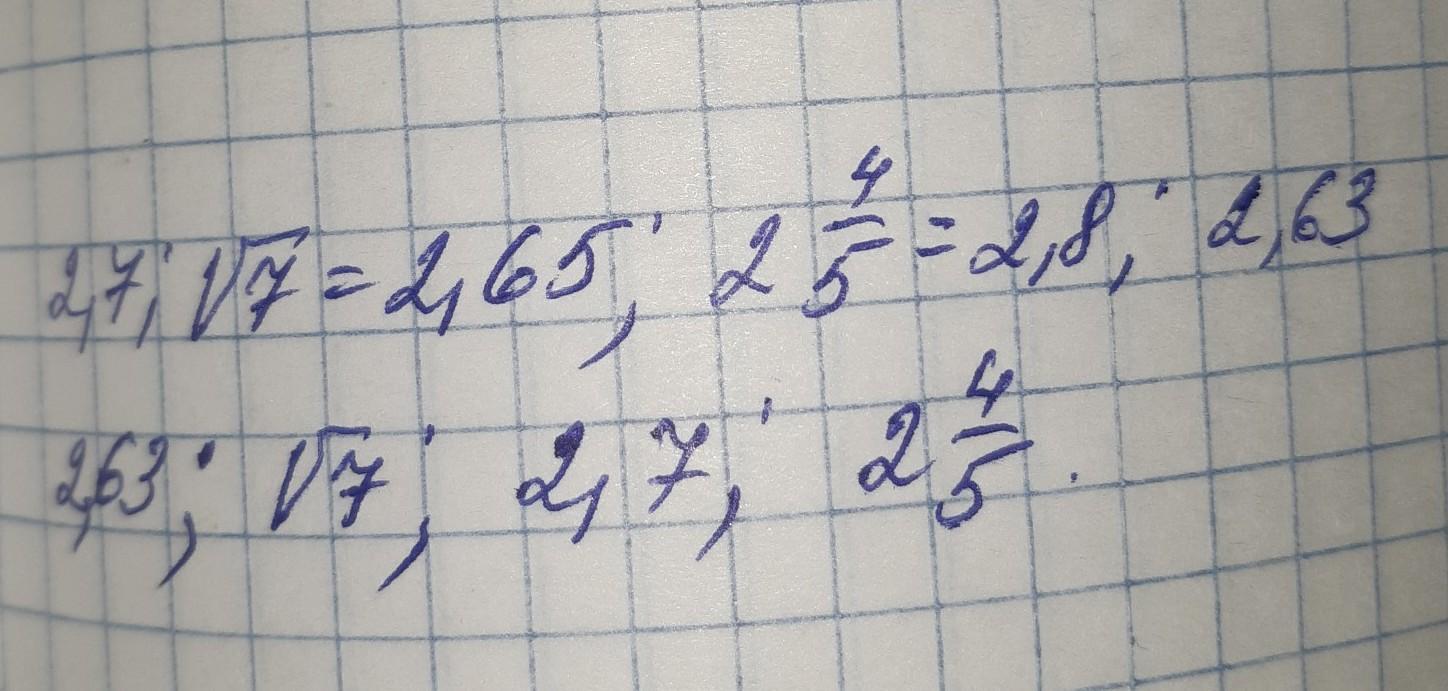 2,7; √7 = 2,65; 2 4/5 = 2,8; 2,63
2,63; √7; 2,7; 2 4/5.